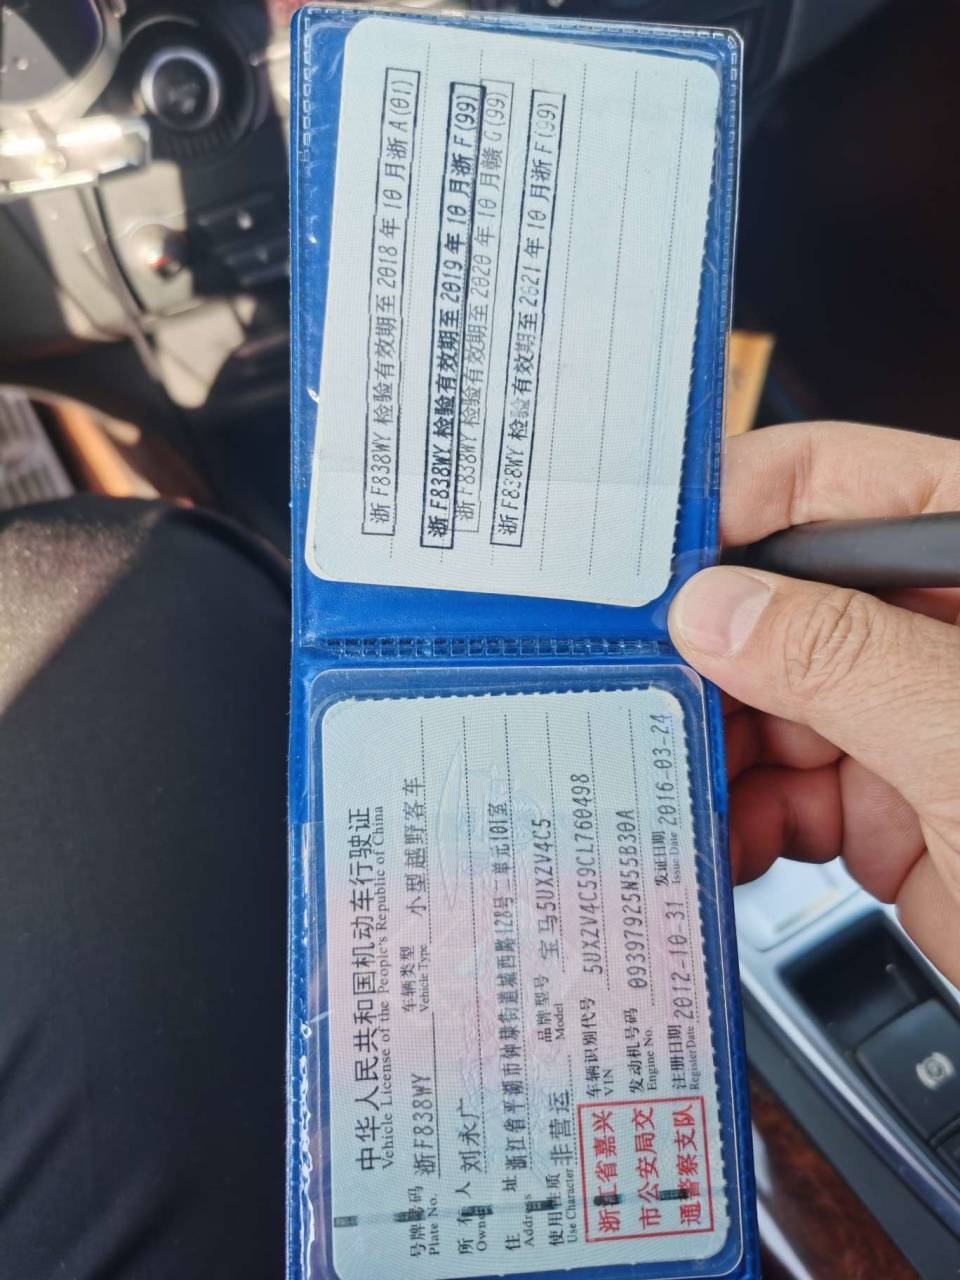 中华人民共和国机动车行驶证
Vehicle License of the People's Republic of China
号牌号码 浙F838WY 车辆类型 小型越野客车
Plate No. Vehicle Type
所有人 刘永广
Owner
住址 浙江省平湖市钟埭街道城西路128号二单元101室
Address
使用性质 非营运 品牌型号 宝马5UXZV4C5
Use Character Model
浙江省嘉兴
市公安局交
通警察支队
车辆识别代号 5UXZV4C59CL760498
VIN
发动机号码 09397925N55B30A
Engine No.
注册日期 2012-10-31 发证日期 2016-03-24
Register Date Issue Date
浙F838WY 检验有效期至2018年10月浙A(01)
浙F838WY 检验有效期至2019年10月浙F(99)
浙F838WY 检验有效期至2020年10月赣G(99)
浙F838WY 检验有效期至2021年10月浙F(99)